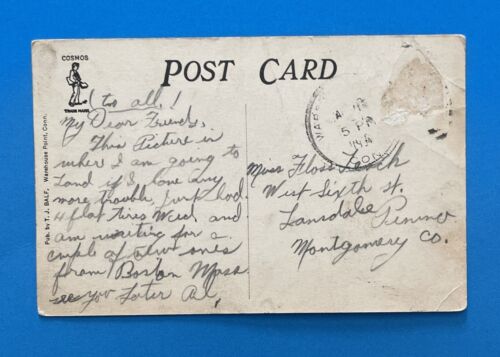 COSMOS
TRADE MARK
POST CARD
Pub. by T. J. BALF, Warehouse Point, Conn.
(to all!
My Dear Friends,
This Picture is
where I am going to
land if I have any
more trouble, just had
4 flat tires Wed. and
am waiting for a
couple of new ones
from Boston Mass.
see you later Al,
5 PM
CON
Miss Floss
West Sixth st.
Lansdale Penna
Montgomery Co.